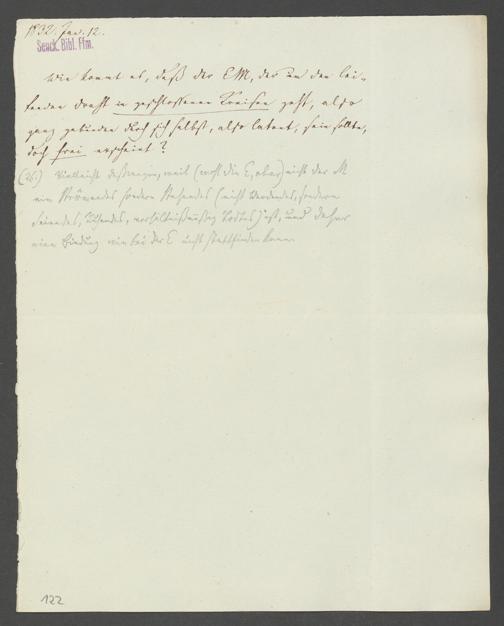 1832. Jan. 12.
Senck. Bibl. Ffm.
Wie kommt es, daß der EM, der in den lei-
tenden in geschlossenen Kreisen geht, also
ganz gebunden durch sich selbst, also latent, sein sollte,
doch frei erscheint?
Vielleicht deßwegen, weil (wohl die E, aber) nicht der M
ein Strömendes sondern Stehendes (nicht Werdendes, sondern
Seiendes, Ruhendes, verhältnißmäßig Todtes) ist, und daher
eine Bindung wie bei der E nicht stattfinden kann.
122